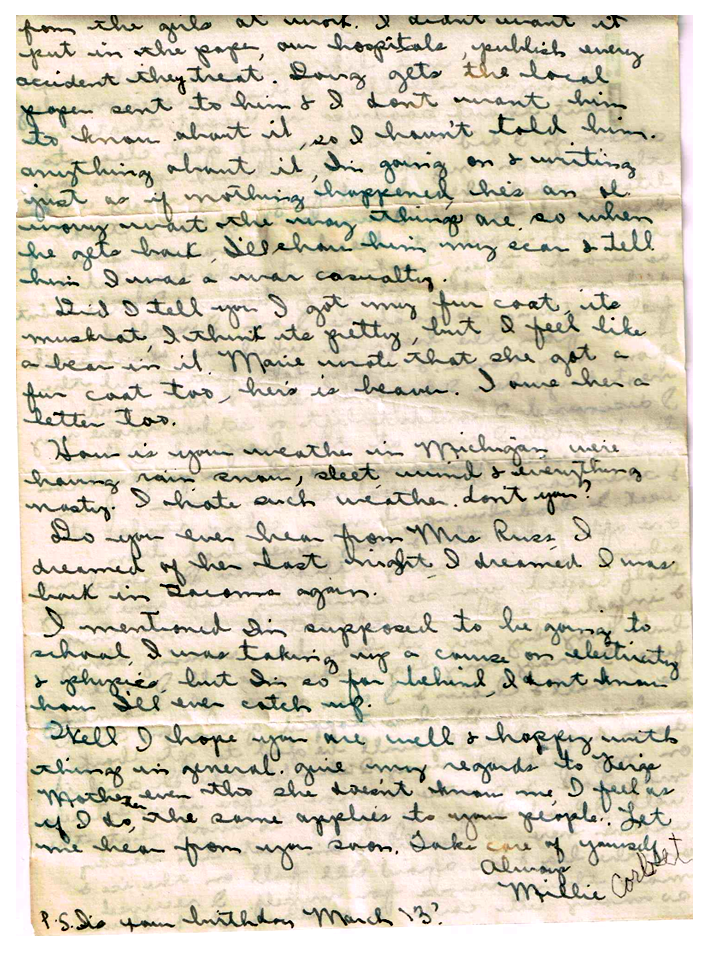 from the girls at work. I didnt want it
put in the paper, our hospitals, publish every
accident they treat. Doug gets the local
paper sent to him & I dont want him
to know about it, so I havn't told him.
anything about it, Im going on & writing
just as if nothing happened, hes an ol
worry wart the way things are, so when
he gets back, I'll show him my scar & tell
him I was a war casualty.
Did I tell you I got my fur coat, its
muskrat, I think its pretty, but I feel like
a bear in it. Marie wrote that she got a
fur coat too, her's is beaver. I owe her a
letter too.
How is your weather in Michigan were
having rain snow, sleet, wind & everything
nasty. I hate such weather. don't you?
Do you ever hear from Mrs Russ, I
dreamed of her last night I dreamed I was
back in Tacoma again.
I mentioned Im supposed to be going to
school, I was taking up a course on electricity
& physics, but Im so far behind, I dont know
how I'll ever catch up.
Well I hope you are well & happy with
things in general. give my regards to
Mother even tho she doesn't know me, I feel as
if I do, the same applies to your people. Let
me hear from you soon. Take care of yourself
Always
Millie Corbset
P.S. Is your birthday March 13?